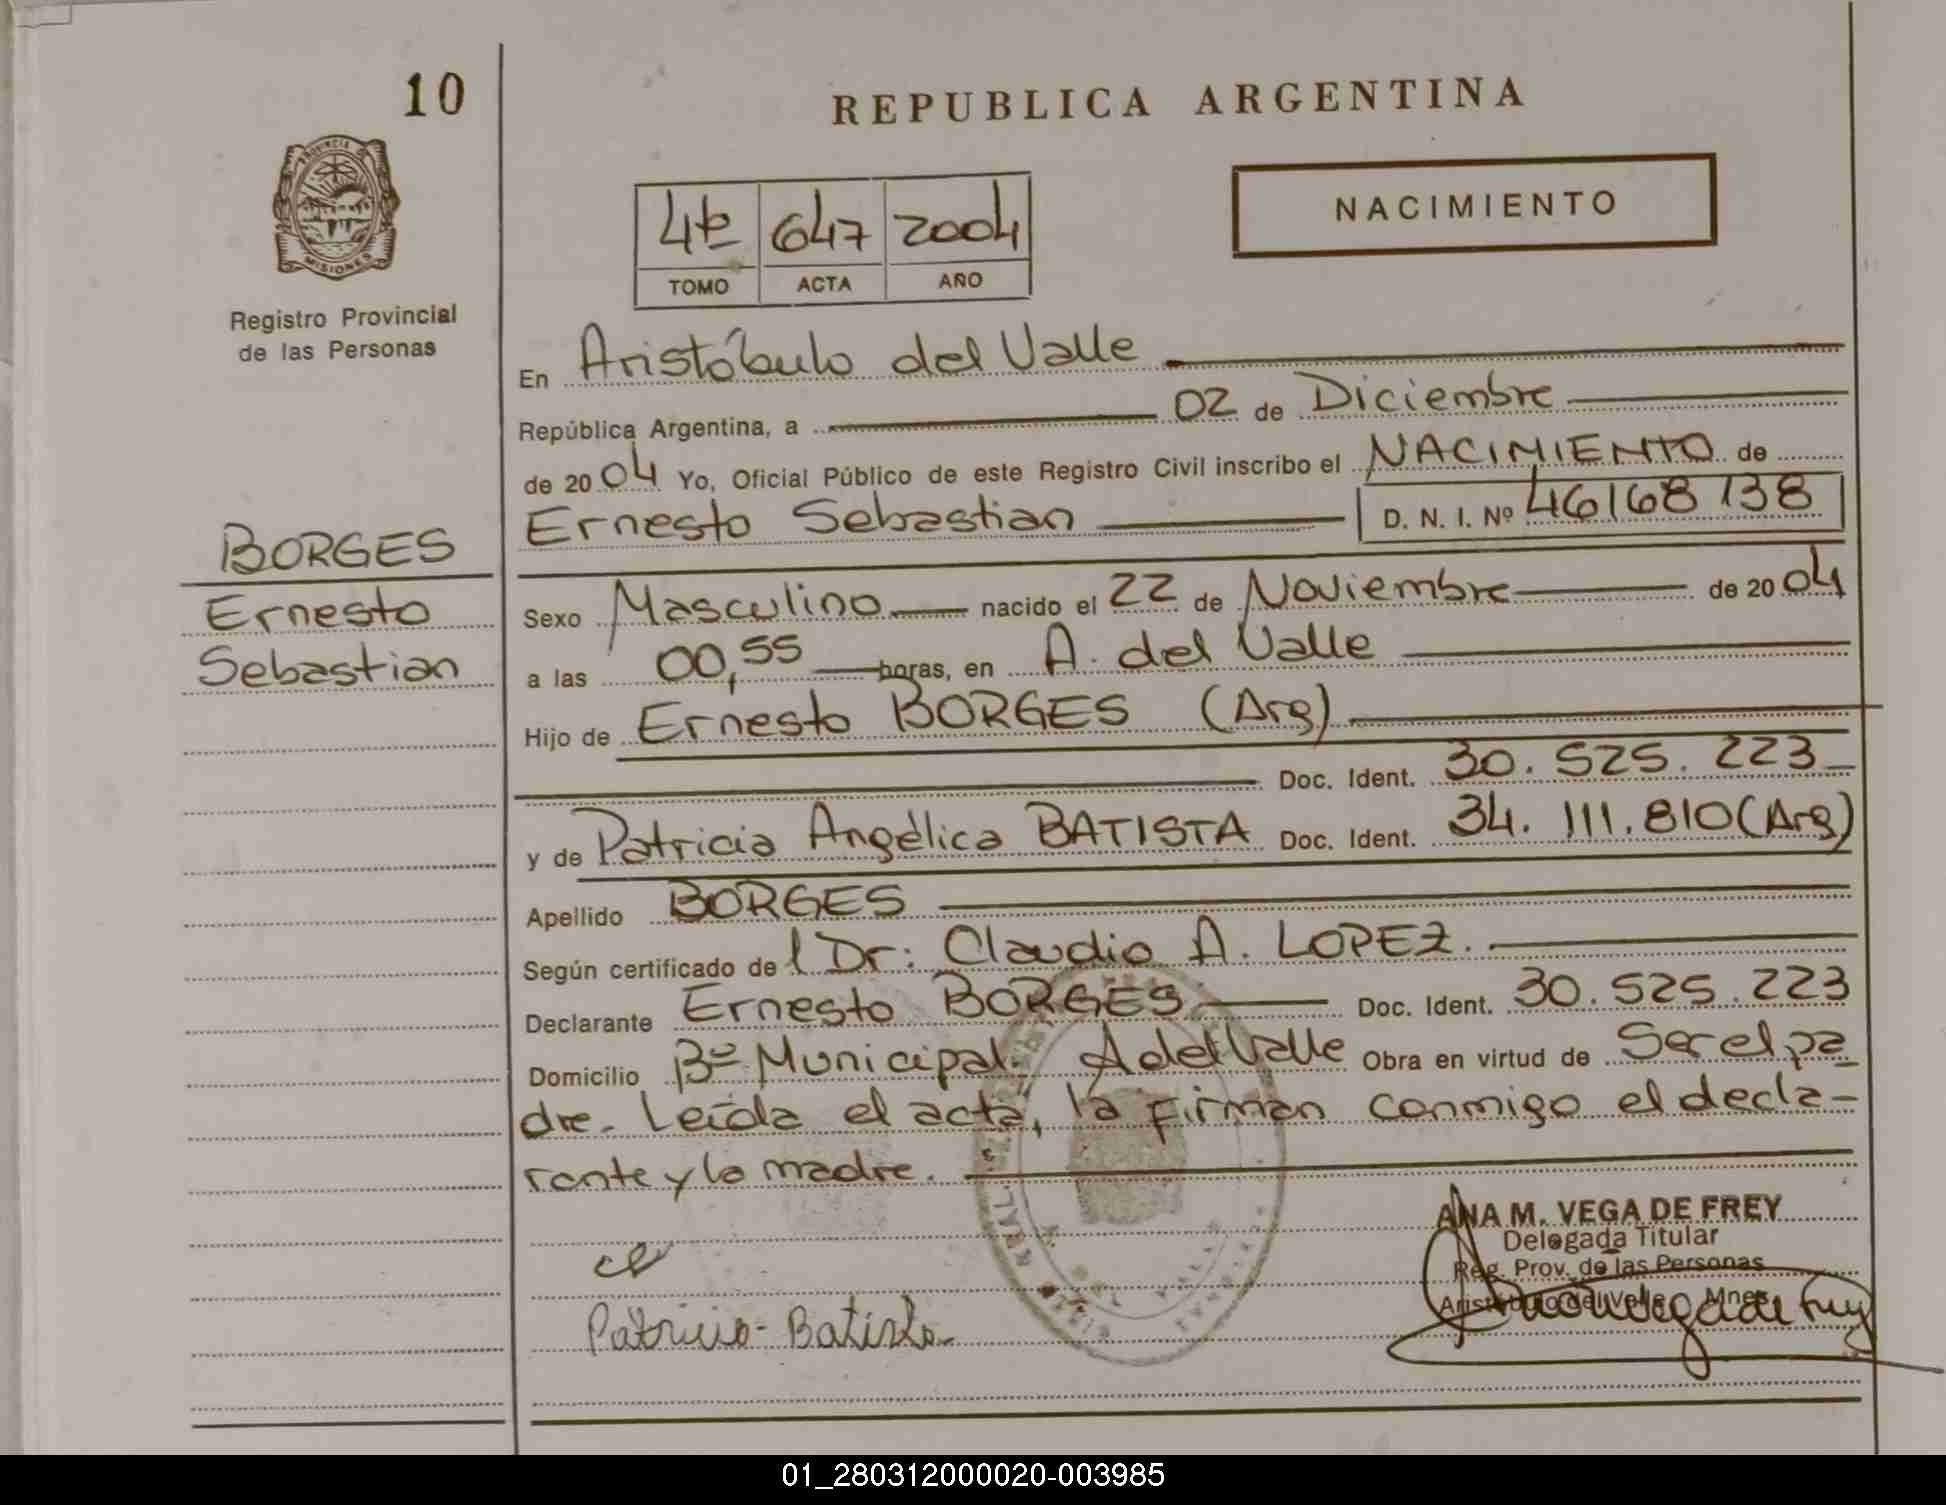 10
REPUBLICA ARGENTINA
PROVINCIA DE
MISIONES
Registro Provincial
de las Personas
4to 647 2004
TOMO ACTA AÑO
NACIMIENTO
En Aristóbulo del Valle
República Argentina, a 02 de Diciembre
de 2004 Yo, Oficial Público de este Registro Civil inscribo el NACIMIENTO de
Ernesto Sebastian D. N. I. Nº 46168138
BORGES
Ernesto
Sebastian
Sexo Masculino nacido el 22 de Noviembre de 2004
a las 00,55 horas, en A. del Valle
Hijo de Ernesto BORGES (Arg)
Doc. Ident. 30.525.223
y de Patricia Angélica BATISTA Doc. Ident. 34.111.810 (Arg)
Apellido BORGES
Según certificado del Dr: Claudio A. LOPEZ.
Declarante Ernesto BORGES Doc. Ident. 30.525.223
Domicilio Bº Municipal. A del Valle Obra en virtud de Ser el pa
dre. Leída el acta, la firman conmigo el decla-
rante y la madre.
ANA M. VEGA DE FREY
Delegada Titular
Reg. Prov. de las Personas
Aristóbulo del Valle Mnes
Patricia Batista
01_280312000020-003985